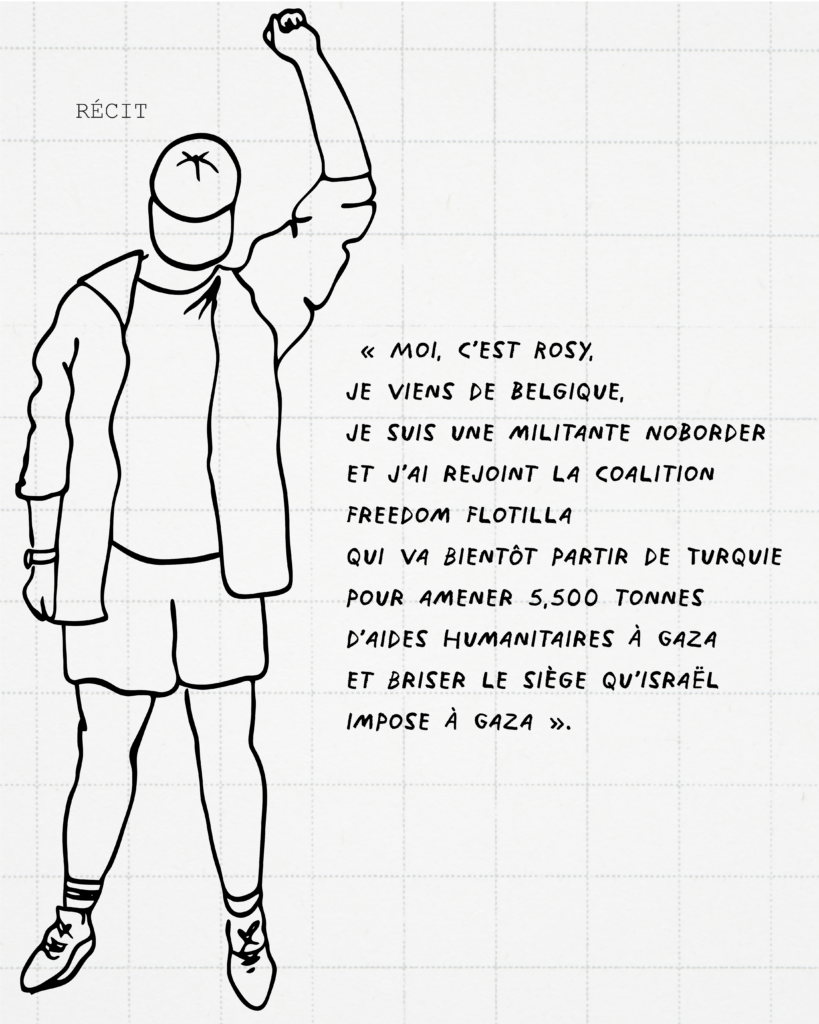 RÉCIT
« MOI, C'EST ROSY,
JE VIENS DE BELGIQUE,
JE SUIS UNE MILITANTE NOBORDER
ET J'AI REJOINT LA COALITION
FREEDOM FLOTILLA
QUI VA BIENTÔT PARTIR DE TURQUIE
POUR AMENER 5,500 TONNES
D'AIDES HUMANITAIRES À GAZA
ET BRISER LE SIÈGE QU'ISRAËL
IMPOSE À GAZA ».